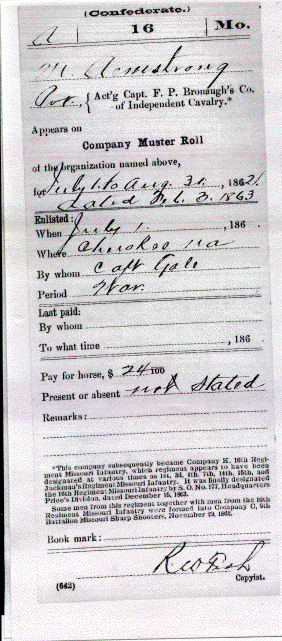 (Confederate.)
A 16 Mo.
M Armstrong
Pvt., { Act'g Capt. F. P. Bronaugh's Co. of Independent Cavalry.*
Appears on
Company Muster Roll
of the organization named above,
for July 1 to Aug. 31, 1862.
dated Feb. 3, 1863
Enlisted:
When July 1. , 186
Where Cherokee Na
By whom Capt
Period War.
Last paid:
By whom
To what time , 186
Pay for horse, $ 24 100
Present or absent not stated
Remarks:
*This company subsequently became Company K, 16th Regi-
ment Missouri Infantry, which regiment appears to have been
designated at various times as 1st, 3d, 4th, 7th, 14th, 15th, and
Jackman's Regiment Missouri Infantry. It was finally designated
the 16th Regiment Missouri Infantry by S. O. No. 177, Headquarters
Price's Division, dated December 15, 1863.
Some men from this regiment together with men from the 10th
Regiment Missouri Infantry were formed into Company C, 9th
Battalion Missouri Sharp Shooters, November 29, 1865.
Book mark:
Copyist.
(642)